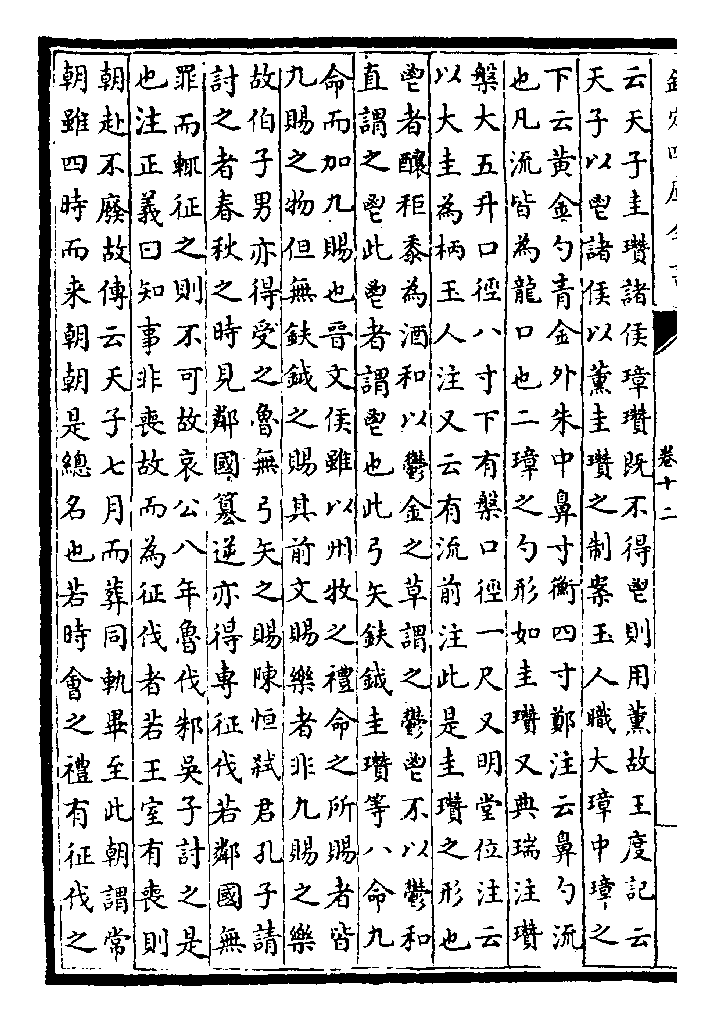 欽定四庫全書
卷十二
云天子圭瓚諸侯璋瓚既不得鬯則用薰故王度記云
天子以鬯諸侯以薰圭瓚之制案玉人職大璋中璋之
下云黄金勺青金外朱中鼻寸衡四寸鄭注云鼻勺流
也凡流皆為龍口也二璋之勺形如圭瓚又典瑞注瓚
槃大五升口徑八寸下有槃口徑一尺又明堂位注云
以大圭為柄玉人注又云有流前注此是圭瓚之形也
鬯者釀秬黍為酒和以鬱金之草謂之鬱鬯不以鬱和
直謂之鬯此鬯者謂鬯也此弓矢鈇鉞圭瓚等八命九
命而加九賜也晉文侯雖以州牧之禮命之所賜者皆
九賜之物但無鈇鉞之賜其前文賜樂者非九賜之樂
故伯子男亦得受之魯無弓矢之賜陳恒弑君孔子請
討之者春秋之時見鄰國簒逆亦得專征伐若鄰國無
罪而輒征之則不可故哀公八年魯伐邾吳子討之是
也注正義曰知事非喪故而為征伐者若王室有喪則
朝赴不廢故傳云天子七月而葬同軌畢至此朝謂常
朝雖四時而来朝朝是總名也若時會之禮有征伐之